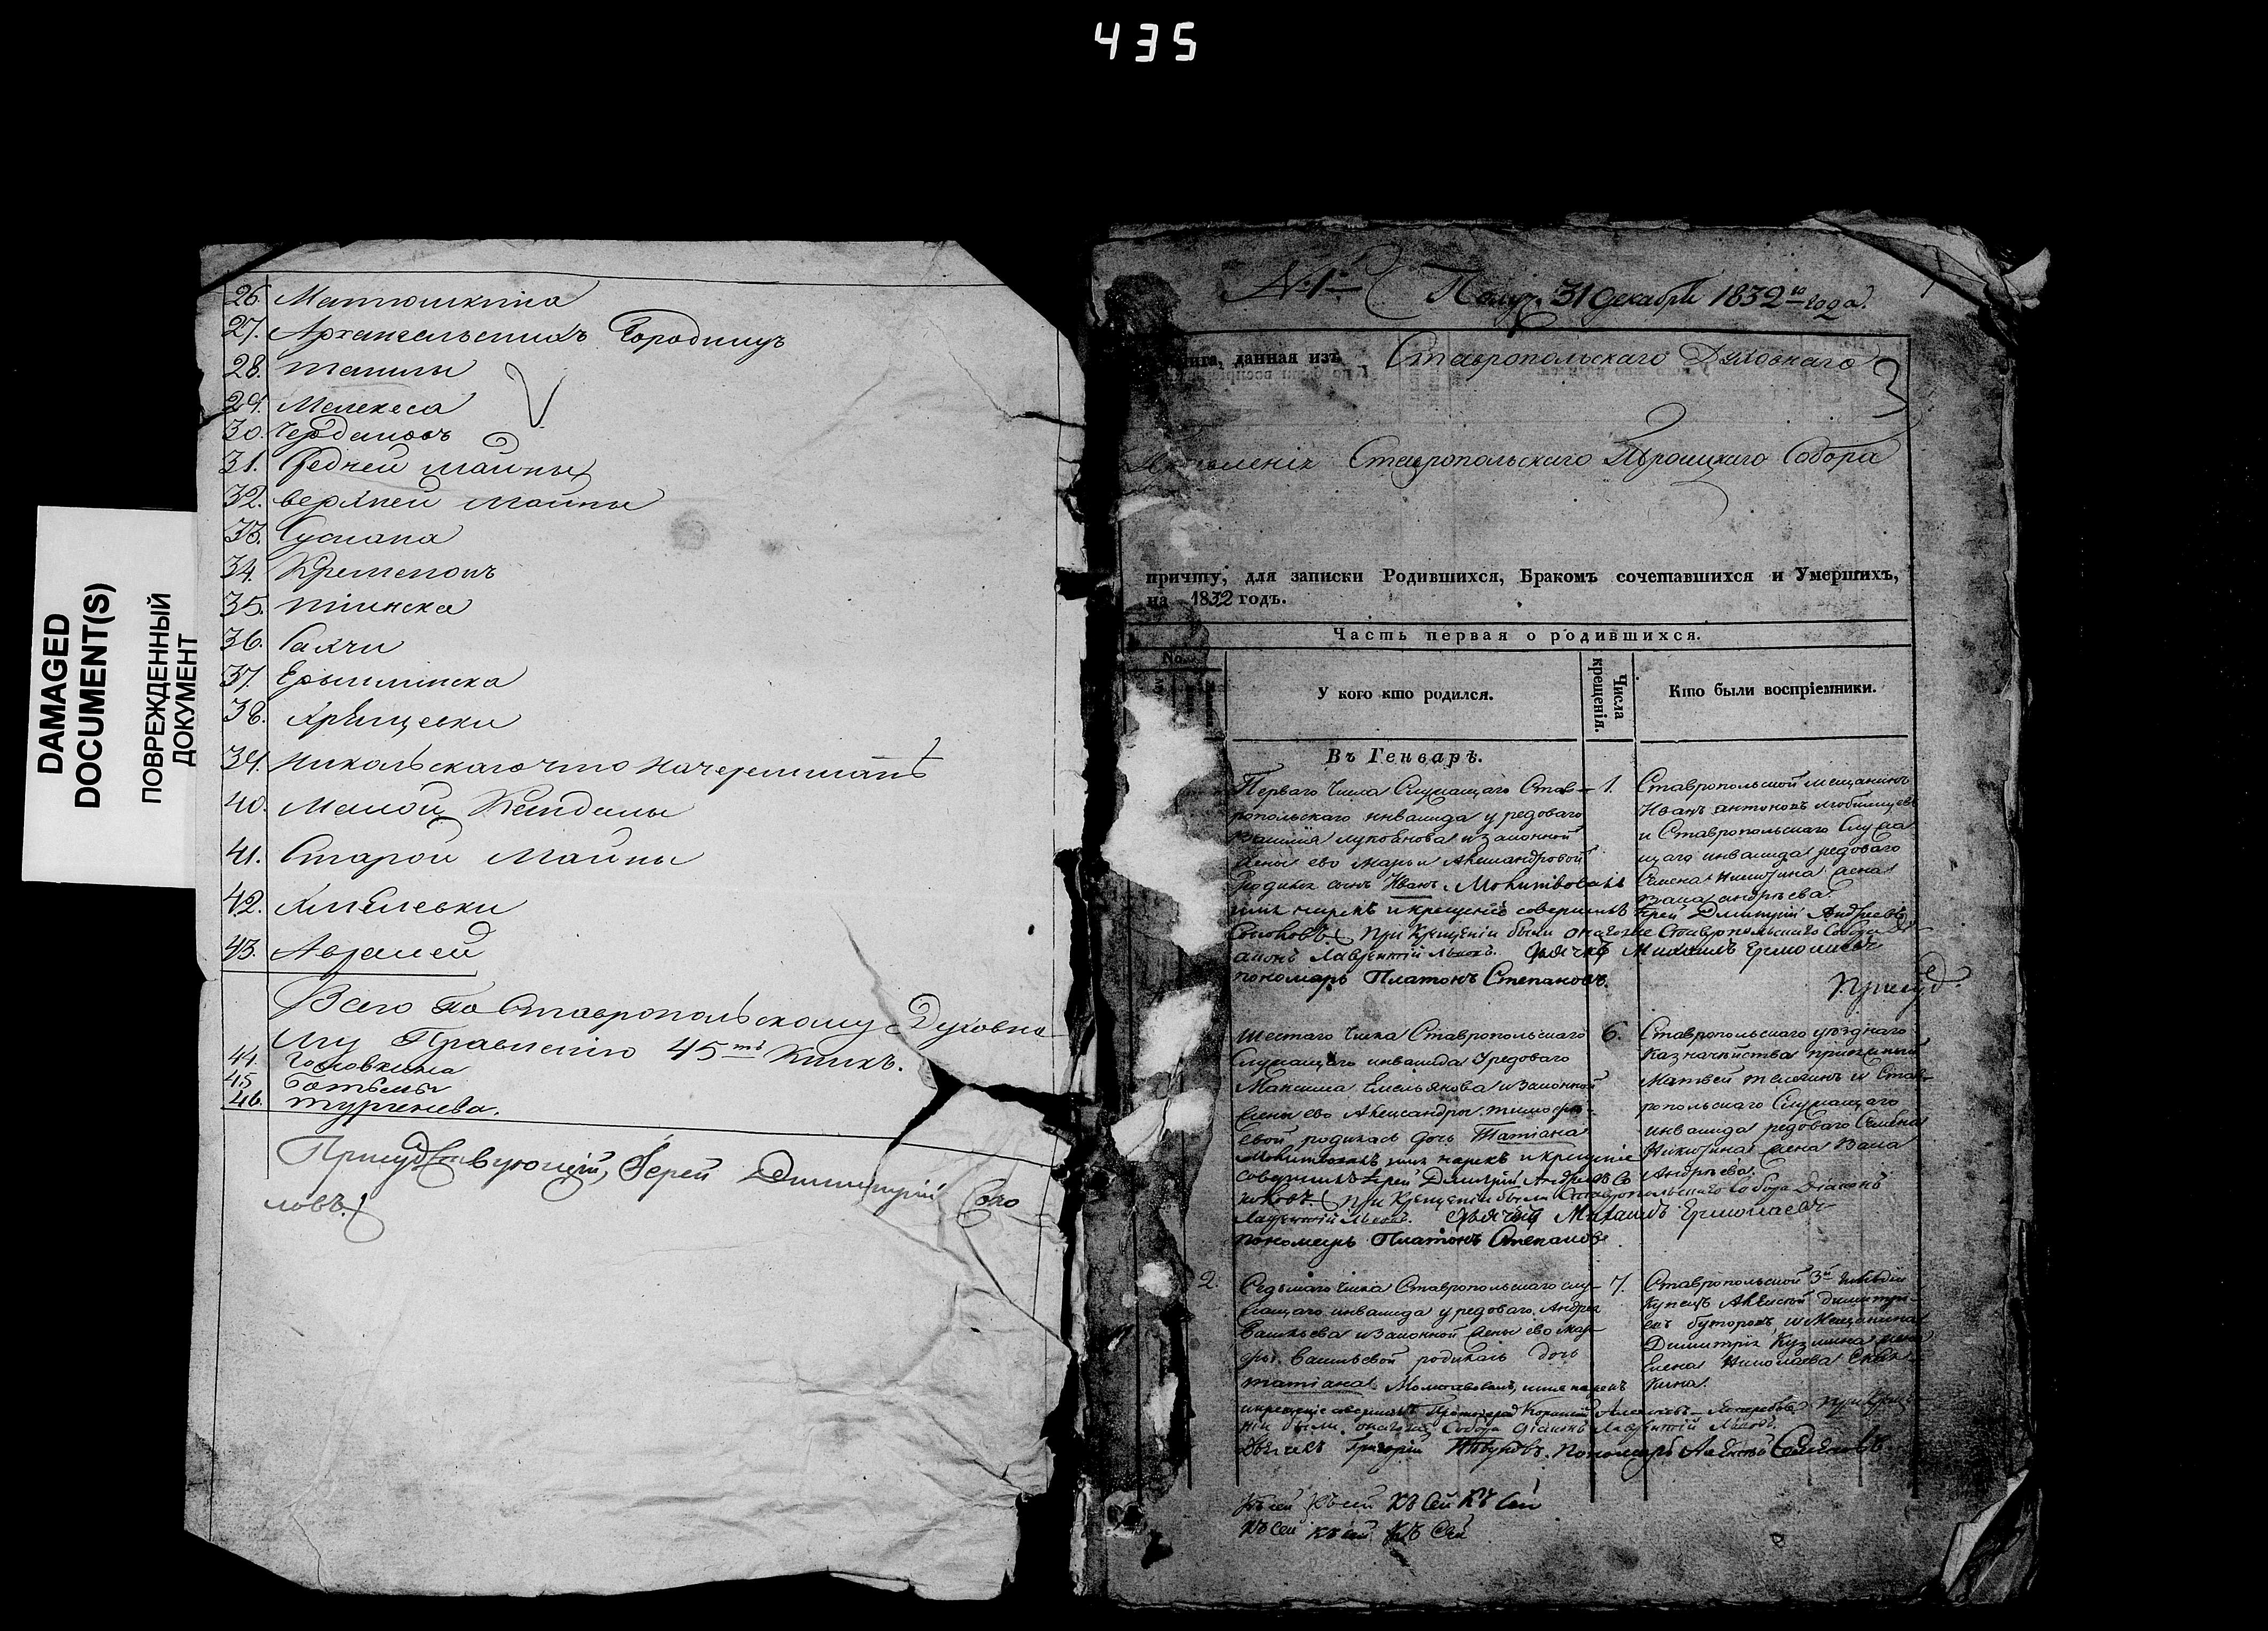 435
DAMAGED
DOCUMENT(S)
ПОВРЕЖДЕННЫЙ
ДОКУМЕНТ
26. Матюшкина
27. Архангельскихъ Городищъ
28. ташлы
29. Мелекеса
30. Чердаковъ
31. Средней майны
32. верхней майны
33. Сускана
34. Кременокъ
35. тiинска
36. Сахчи
37. Ерыклинска
38. Хрящевки
39. Никольскаго что на черемшанѣ
40. Малой Кандалы
41. Старой Майны
42. Хмѣлевки
43. Авралей
Всего по Ставропольскому Духовно
му Правленiю 45ть Книгъ.
44. Головкина
45
46. тургенева.
Присудствующiй, Iерей Димитрiй Соко
ловъ.
№ 1й Получ. 31 декабря 1832го года.
книга, данная изъ Ставропольскаго Духовнаго
3
Правленiя Ставропольскаго Троицкаго Собора
причту, для записки Родившихся, Бракомъ сочетавшихся и Умерших,
на 1832 годъ.
Часть первая о родившихся.
No.
У кого кто родился.
Числа крещенiя.
Кто были воспрiемники.
Въ Генварѣ.
Перваго числа Служащаго Став-
ропольскаго инвалида у редоваго
Лукоянова и законной
жены ево Марьи Александровой
родился сынъ Иванъ. Молитвовалъ
имя нарекъ и крещенiе совершилъ Iерей Димитрiй Андреевъ
Соколовъ. При Крещенiи были онагоже Ставропольскаго Собора Дi-
аконъ Лаврентiй Львовъ. Дьячекъ Михаилъ Ермолаевъ
пономарь Платонъ Степановъ.
1.
Ставропольской мещанинъ
Иванъ антоновъ любимцевъ
и Ставропольскаго Служа
щаго инвалида редоваго
Семена Никитина жена
андрѣева.
Присуд
шестаго числа Ставропольскаго
Служащаго инвалида У редоваго
Максима Емельянова и законной
жены ево Александры тимофѣ-
евой родилась дочь Татiана
Молитвовалъ имя нарекъ и крещенiе
совершилъ Iерей Димитрiй Андреевъ Со
коловъ. При Крещенiи были Ставропольскаго Собора Дiаконъ
Лаврентiй Львовъ. Дьячекъ Михаилъ Ермолаевъ
пономарь Платонъ Степановъ.
6.
Ставропольскаго уѣзднаго
Казначейства
Матвей и Став-
ропольскаго Служащаго
инвалида редоваго Семена
Никитина жена
Андрѣева.
2.
Седьмаго числа Ставропольскаго слу-
жащаго инвалида у редоваго Андрея
Васильева и законной жены ево Мар-
фы Васильевой родилась дочь
татiана. Молитвовалъ, имя нарекъ
и крещенiе совершилъ Протоiерей
нiи были онагоже Собора дiаконъ Лаврентiй Львовъ,
Дьячекъ Григорiй Пономарь Алексей
7.
Ставропольской 3й гильдiи
Купецъ Алексей димитрi-
евъ буторовъ, и Мещанина
Димитрiя Кузмина жена
Елена Николаева
кина.
Къ сей Къ сей Къ Сей Къ Сей
Къ Сей Къ сей Къ Сей